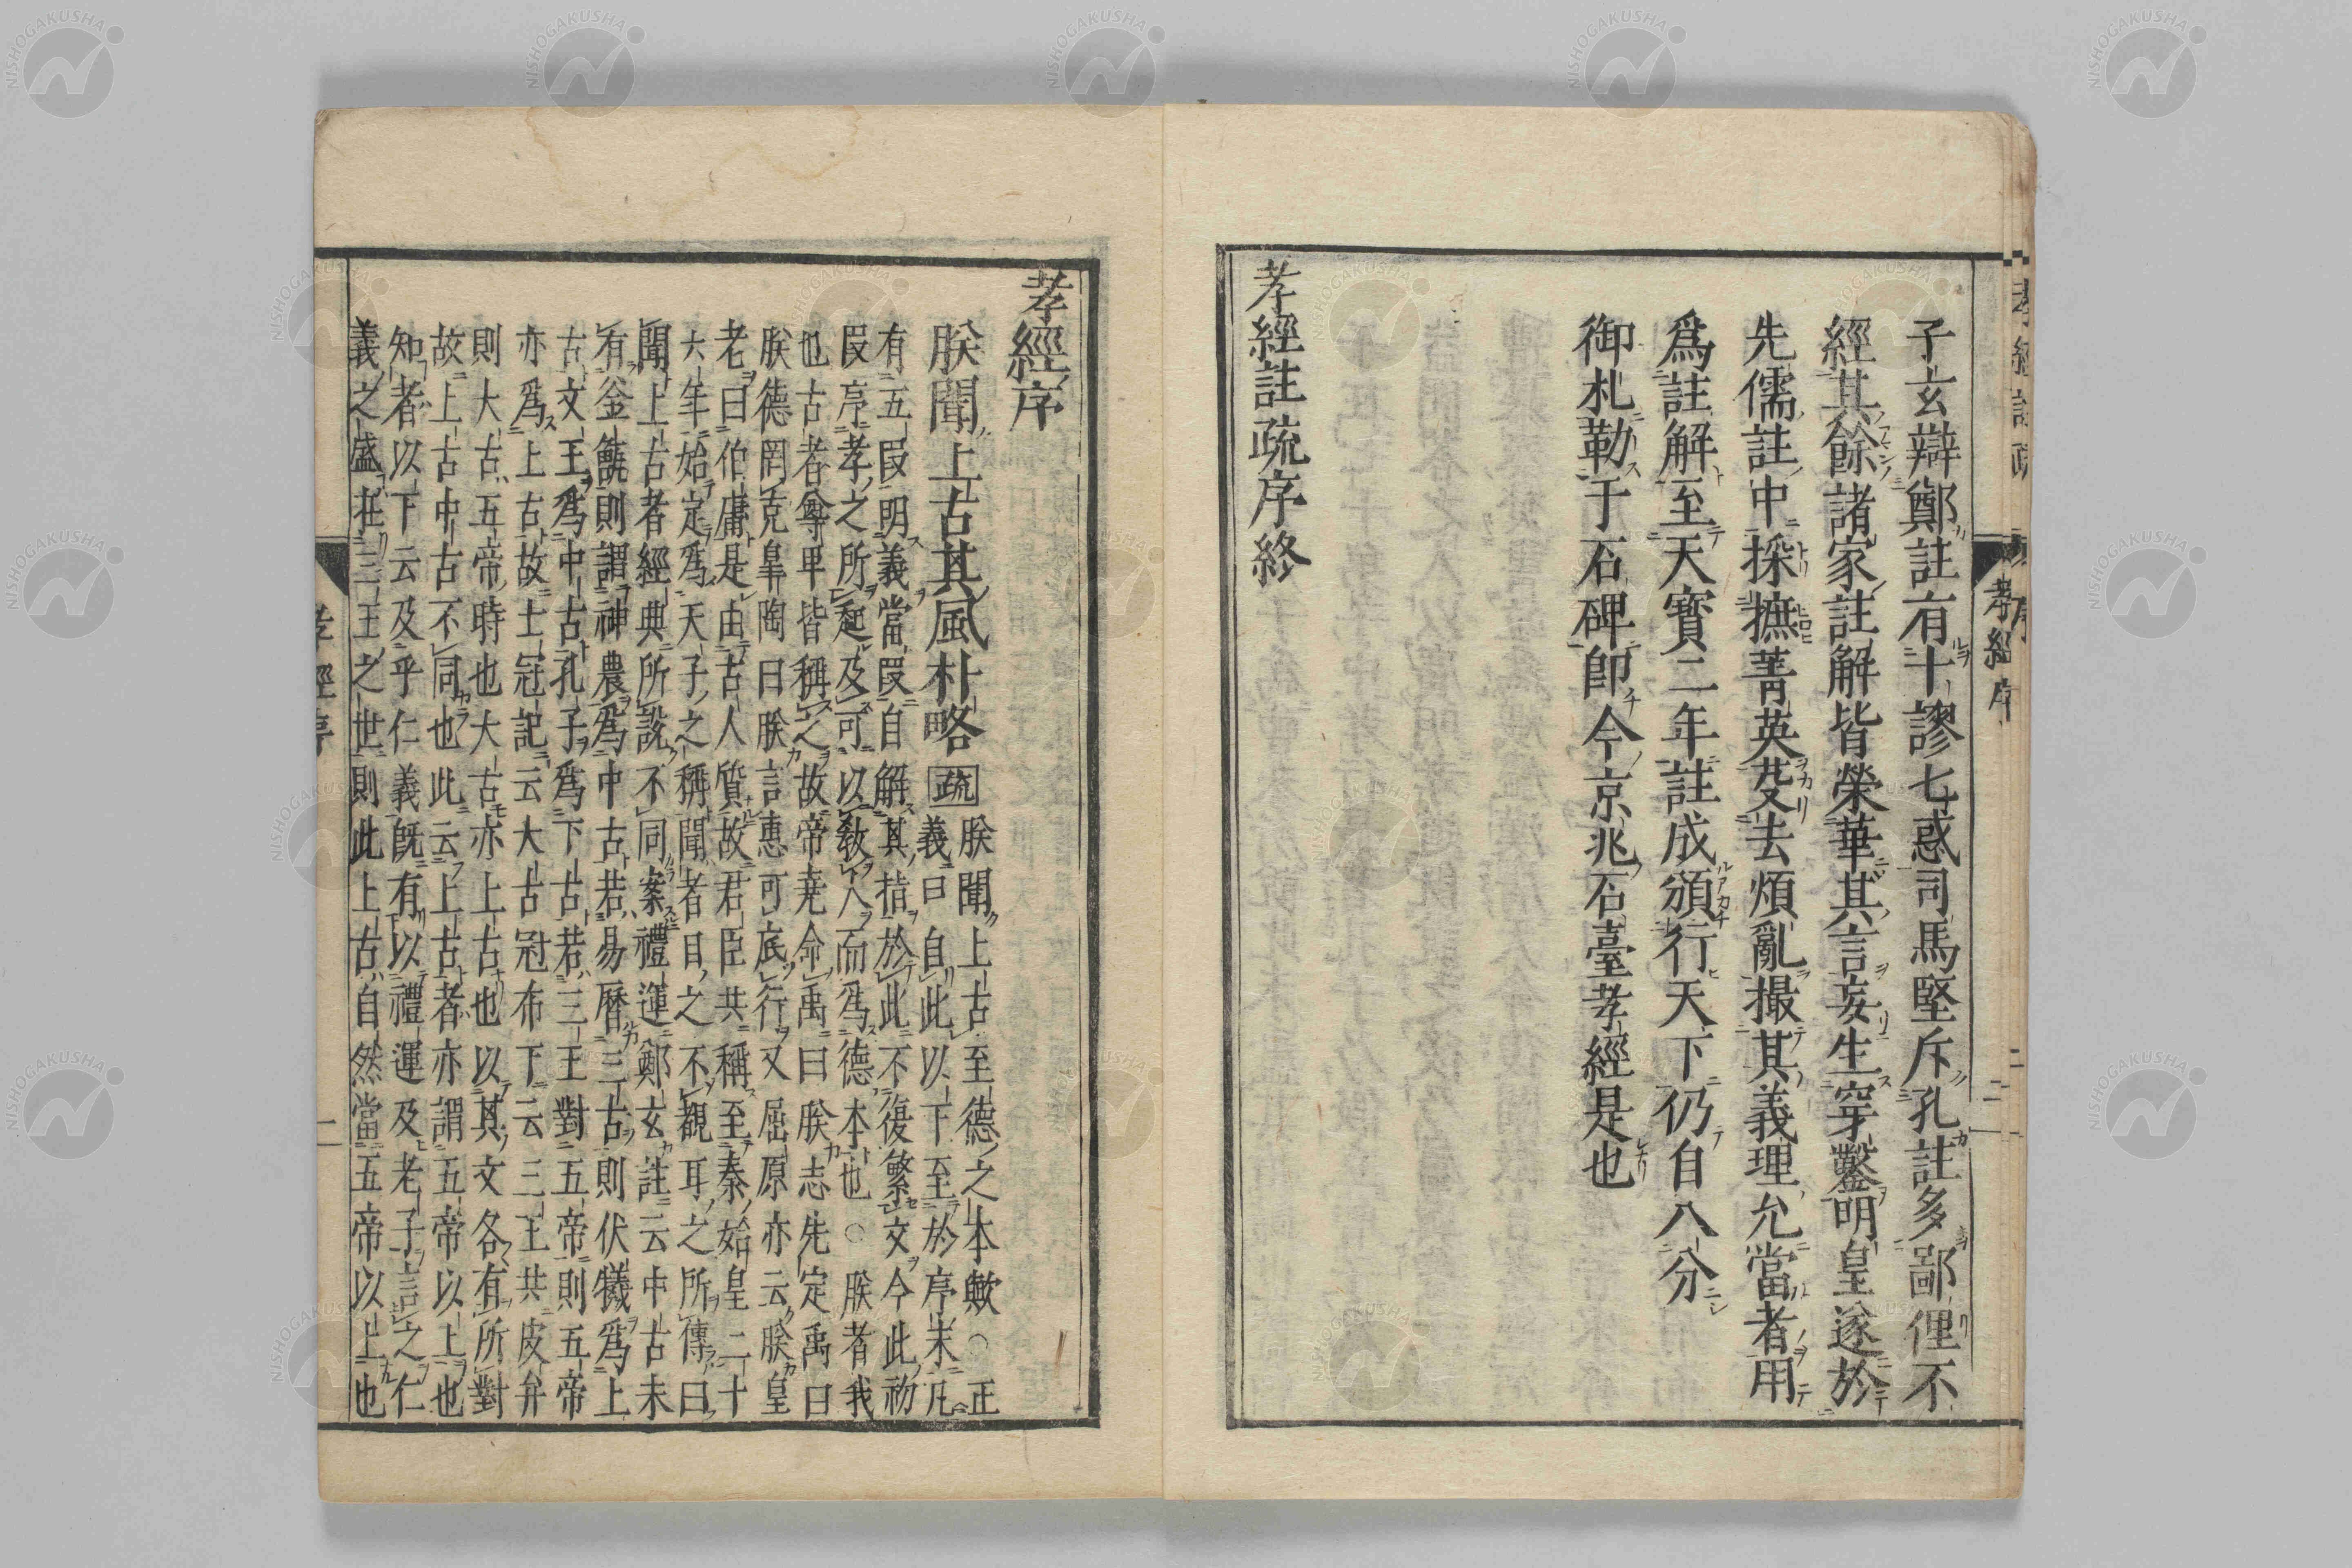 子玄辯鄭註有十謬七惑司馬堅斥孔註多鄙俚不
經其餘諸家註解皆榮華其言妄生穿鑿明皇遂於
先儒註中採摭菁英芟去煩亂撮其義理允當者用
爲註解至天寶二年註成頒行天下仍自八分
御札勒于石碑卽今京兆石臺孝經是也
孝經註疏序終
孝經序
孝經序
朕聞上古其風朴略
疏
朕聞上古至德之本歟○正
義曰自此以下至於序末凡
有五段明義當段自解其指於此不復繁文今此初
段序孝之所起及可以敎人而爲德本也○朕者我
也古者尊卑皆稱之故帝堯命禹曰朕志先定禹曰
朕德罔克皐陶曰朕言惠可底行又屈原亦云朕皇
老曰伯庸是由古人質故君臣共稱至秦始皇二十
六年始定爲天子之稱聞者目之不覩耳之所傳曰
聞上古者經典所說不同案禮運鄭玄註云中古未
有釜甑則謂神農爲中古若易曆三古則伏犧爲上
古文王爲中古孔子爲下古若三王對五帝則五帝
亦爲上古故士冠記云大古冠布下云三王共皮弁
則大古五帝時也大古亦上古也以其文各有所對
故上古中古不同也此云上古者亦謂五帝以上也
知者以下云及乎仁義旣有以禮運及老子言之仁
義之盛在三王之世則此上古自然當五帝以上也